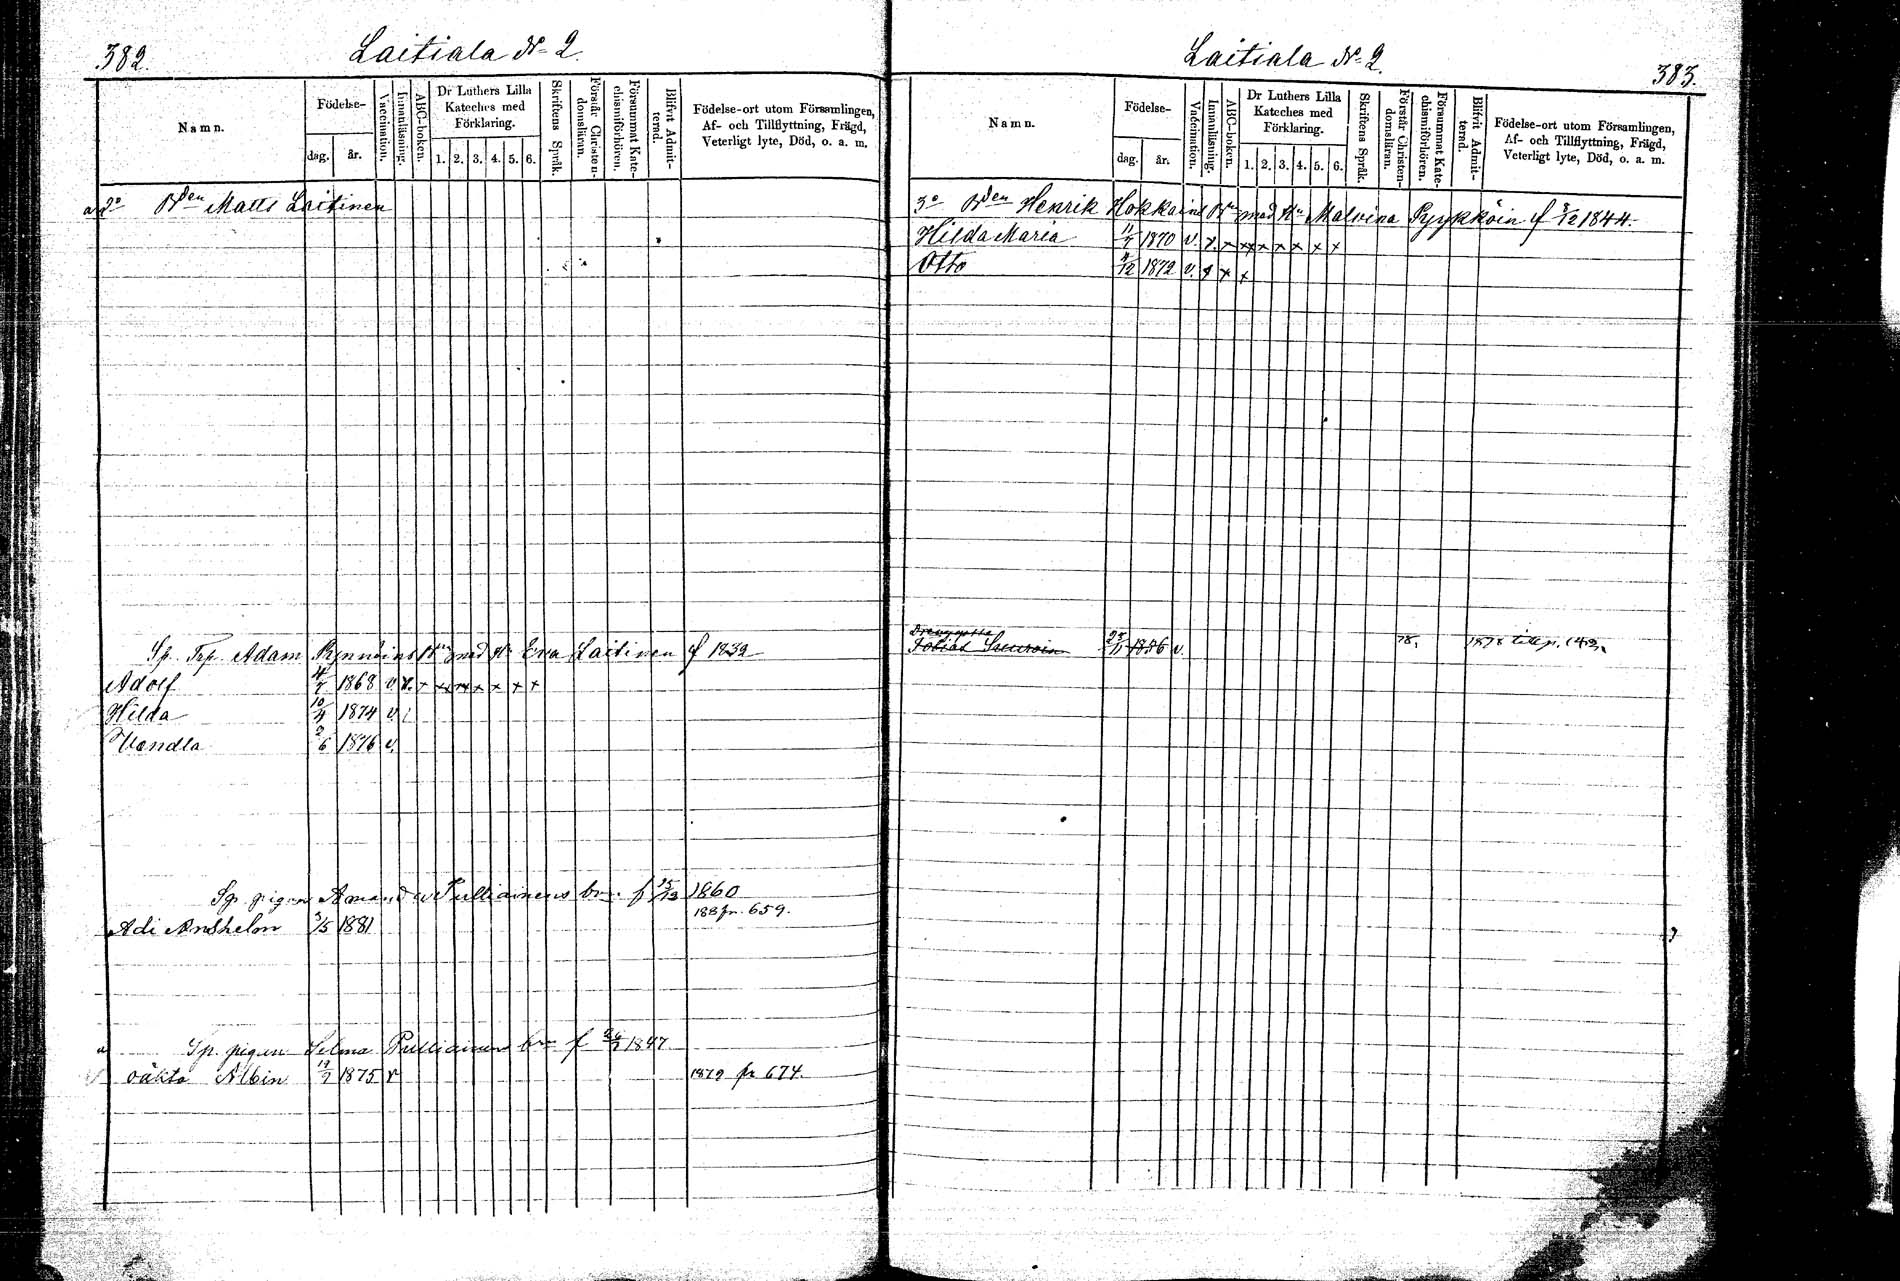 382.
Laitiala No 2.
Namn.
Födelse-
dag.
år.
Vaccination.
Innanläsning.
ABC-boken.
Dr Luthers Lilla
Kateches med
Förklaring.
1. 2. 3. 4. 5. 6.
Skriftens Språk.
Förstår Christen-
domsläran.
Försummat Kate-
chismiförhören.
Blifvit Admit-
terad.
Födelse-ort utom Församlingen,
Af- och Tillflyttning, Frägd,
Veterligt lyte, Död, o. a. m.
a 2o Bden Matts Laitinen
Sp. Trp. Adam Rynnöins Btn med Hu Eva Laitinen f 1832
Adolf 4/7 1868 v. x. x x x x x x x x
Hilda 10/4 1874 v.
Wendla 9/6 1876 v.
Sp. pigan Amanda Pulliainens brn. f 25/12 1860
188 fr. 659.
Adi Anshelm 3/5 1881
Sp. pigan Selma Pulliainens brn f 26/7 1847
oäkta Albin 19/9 1875 v 1879 fr 674.
Laitiala No 2.
383.
Namn.
Födelse-
dag.
år.
Vaccination.
Innanläsning.
ABC-boken.
Dr Luthers Lilla
Kateches med
Förklaring.
1. 2. 3. 4. 5. 6.
Skriftens Språk.
Förstår Christen-
domsläran.
Försummat Kate-
chismiförhören.
Blifvit Admit-
terad.
Födelse-ort utom Församlingen,
Af- och Tillflyttning, Frägd,
Veterligt lyte, Död, o. a. m.
3o Bden Henrik Hokkains Btn med Hu Malvina Pyykköin f 8/12 1844.
Hilda Maria 11/7 1870 v. x. x x x x x x x x
Otto 4/12 1872 v. x x x
Tobias 23/11 1856 v. 78. 1878